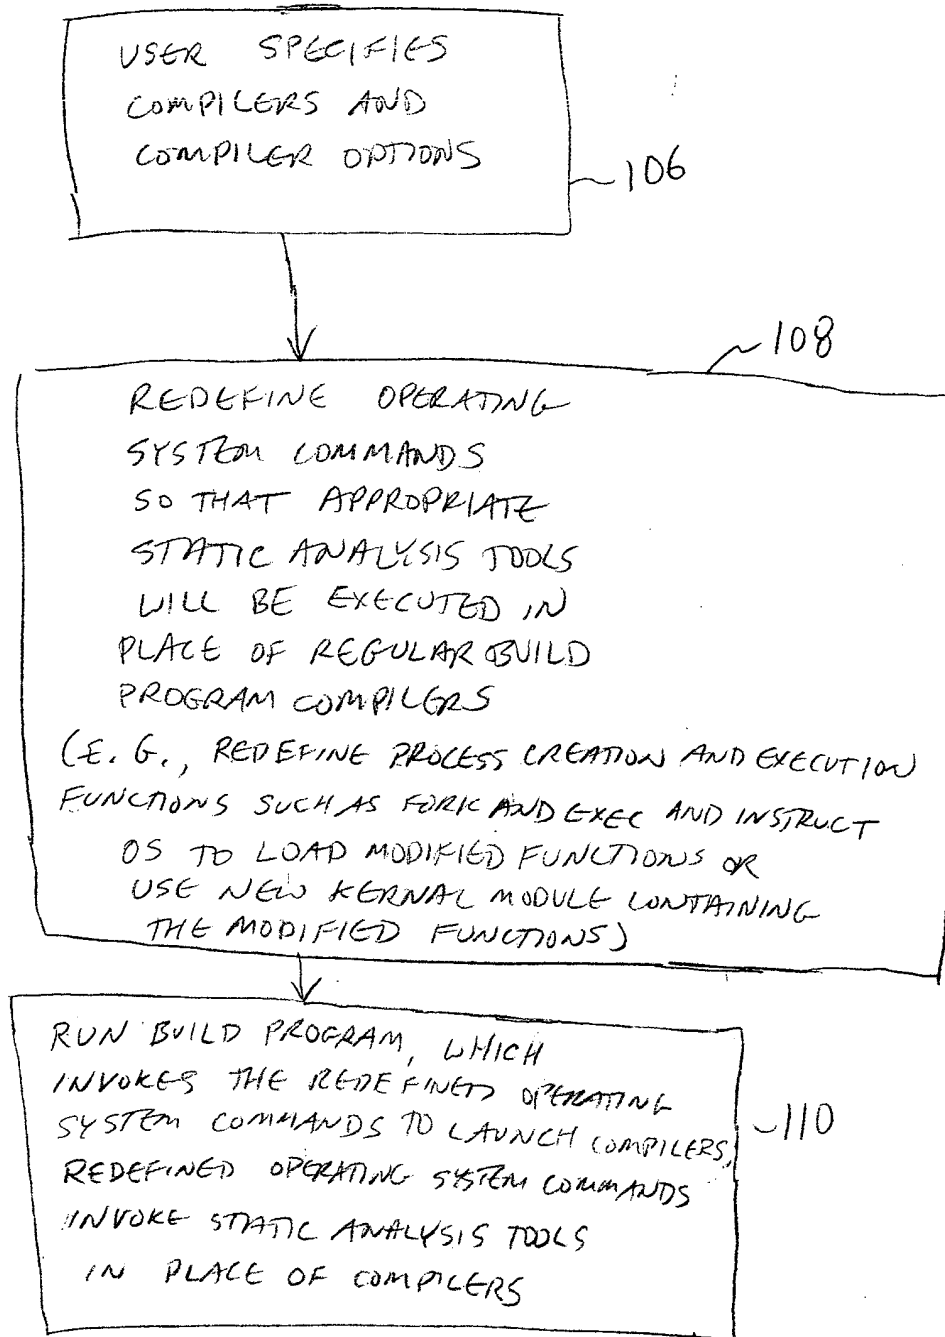 USER SPECIFIES
COMPILERS AND
COMPILER OPTIONS
106
108
REDEFINE OPERATING
SYSTEM COMMANDS
SO THAT APPROPRIATE
STATIC ANALYSIS TOOLS
WILL BE EXECUTED IN
PLACE OF REGULAR BUILD
PROGRAM COMPILERS
(E.G., REDEFINE PROCESS CREATION AND EXECUTION
FUNCTIONS SUCH AS FORK AND EXEC AND INSTRUCT
OS TO LOAD MODIFIED FUNCTIONS OR
USE NEW KERNAL MODULE CONTAINING
THE MODIFIED FUNCTIONS)
RUN BUILD PROGRAM, WHICH
INVOKES THE REDEFINED OPERATING
SYSTEM COMMANDS TO LAUNCH COMPILERS,
110
REDEFINED OPERATING SYSTEM COMMANDS
INVOKE STATIC ANALYSIS TOOLS
IN PLACE OF COMPILERS